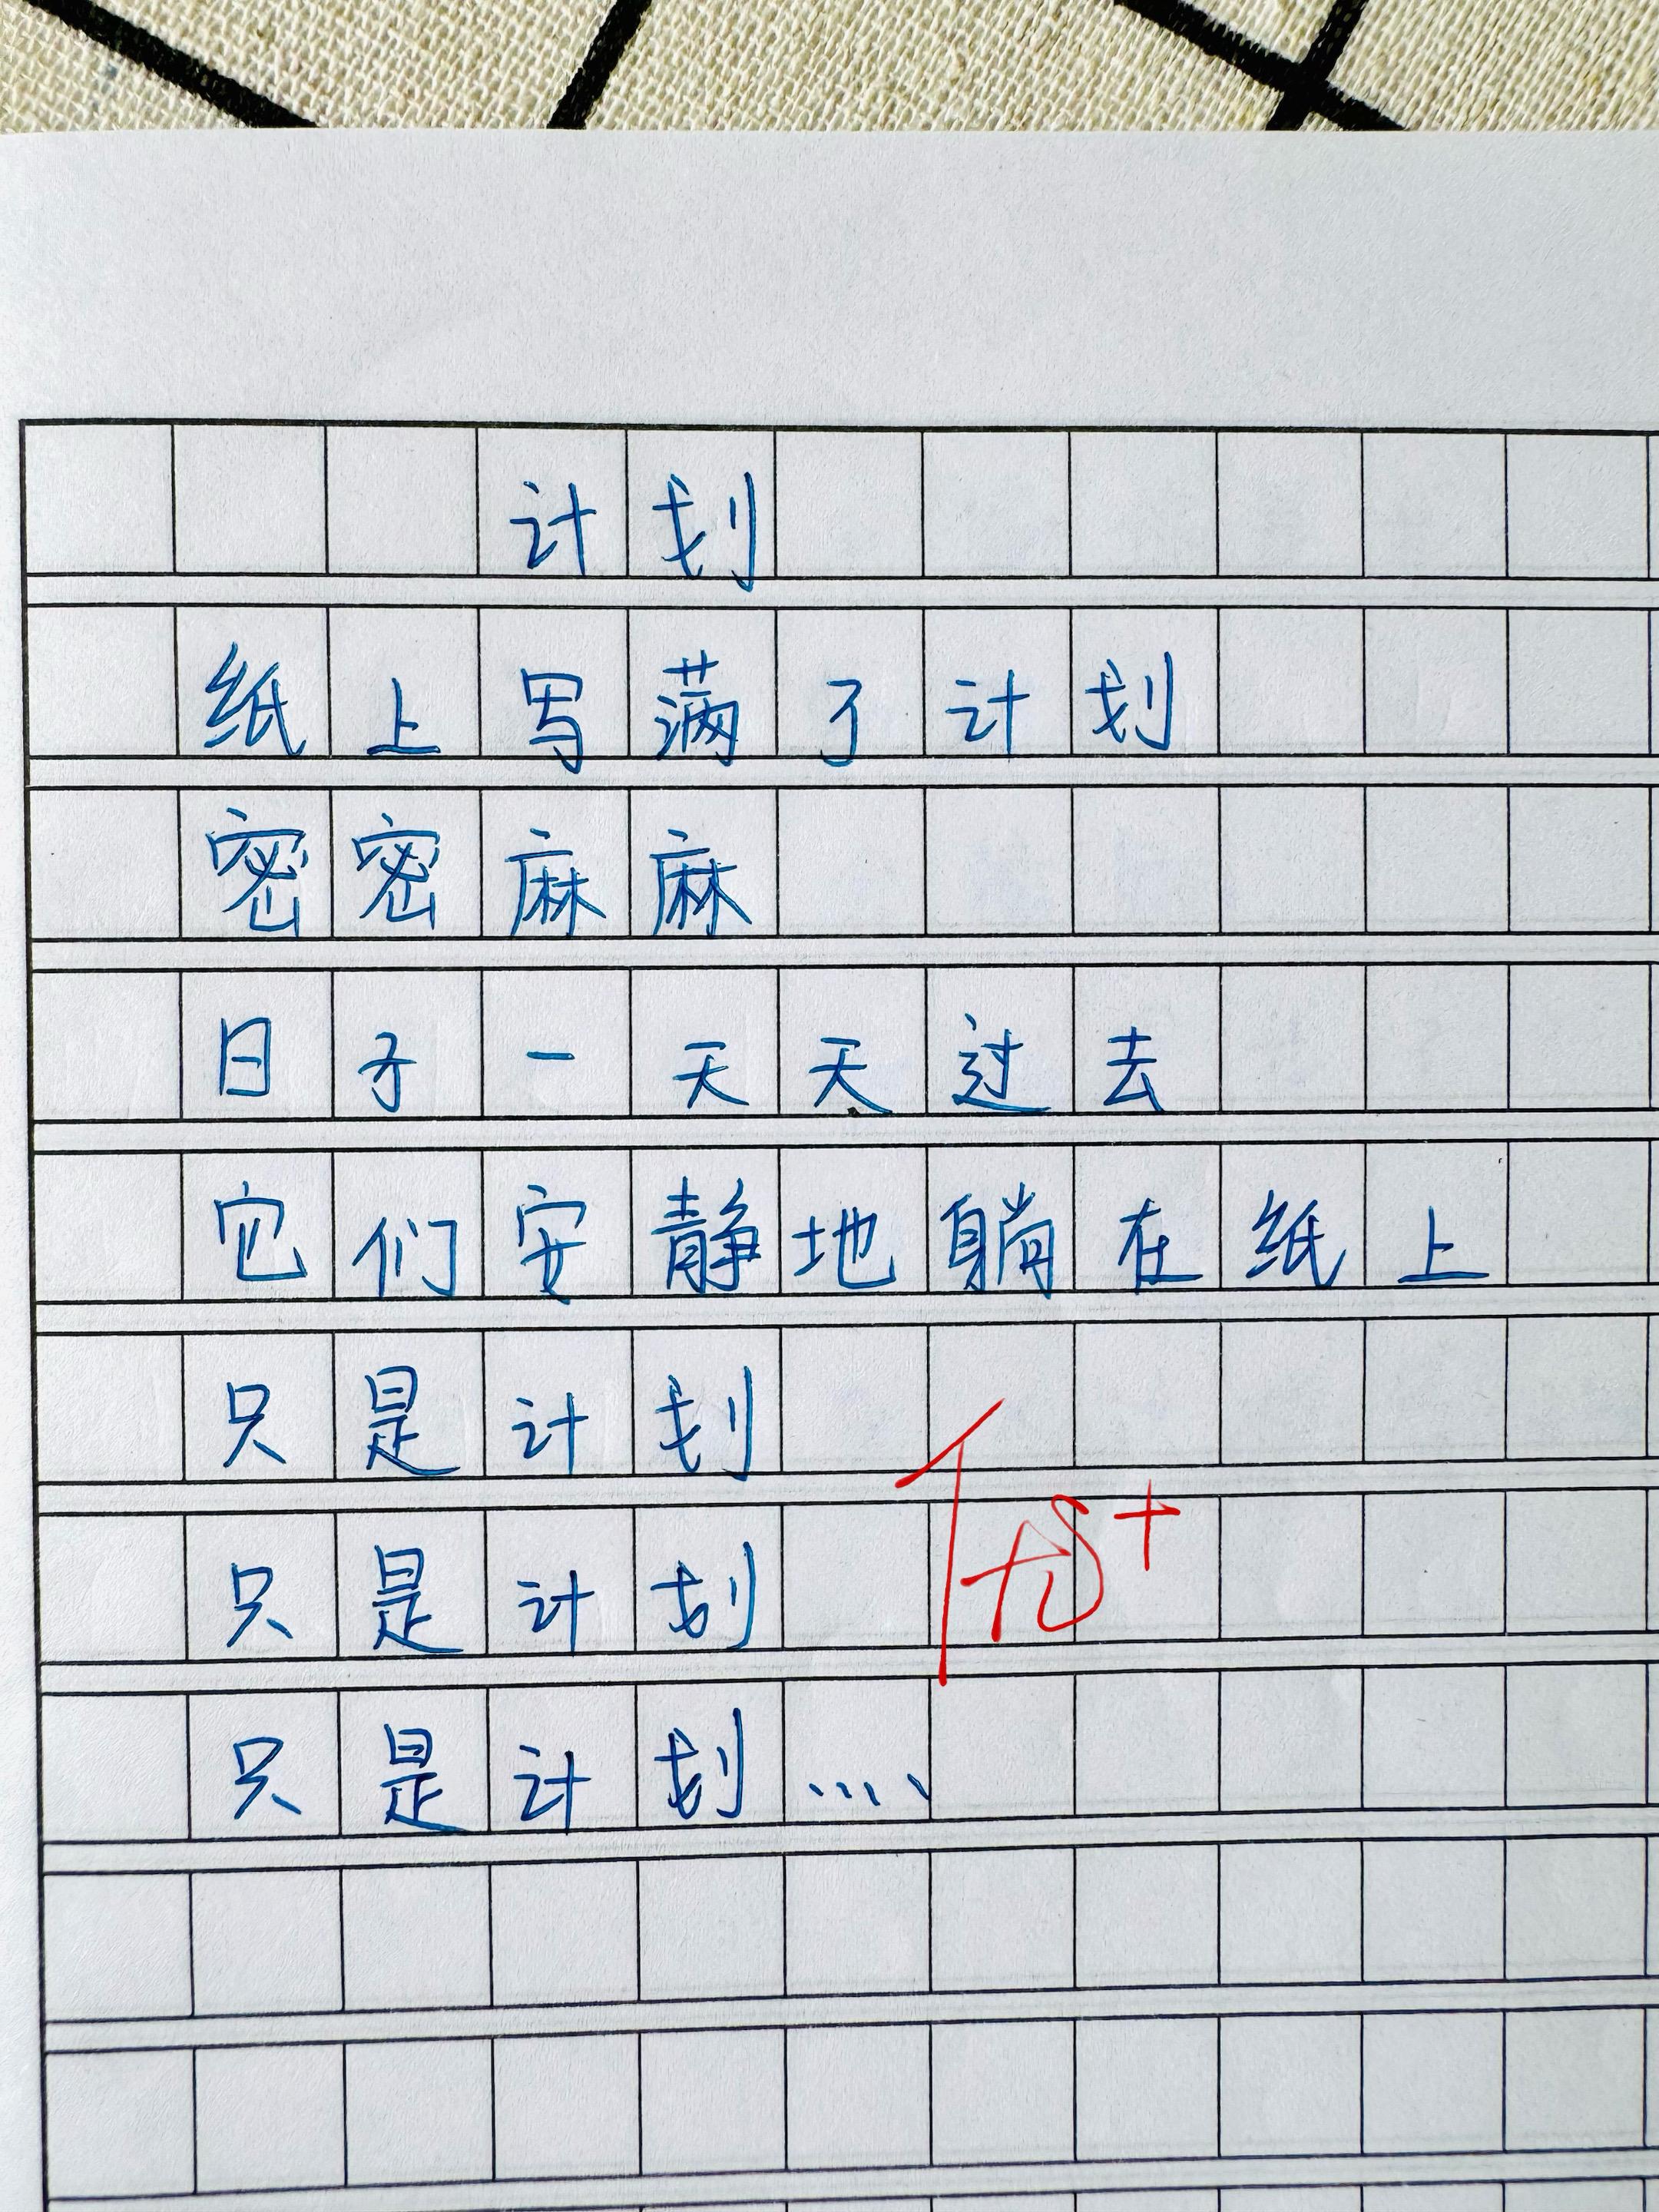 计划
纸上写满了计划
密密麻麻
日子一天天过去
它们安静地躺在纸上
只是计划
只是计划
只是计划....
优+